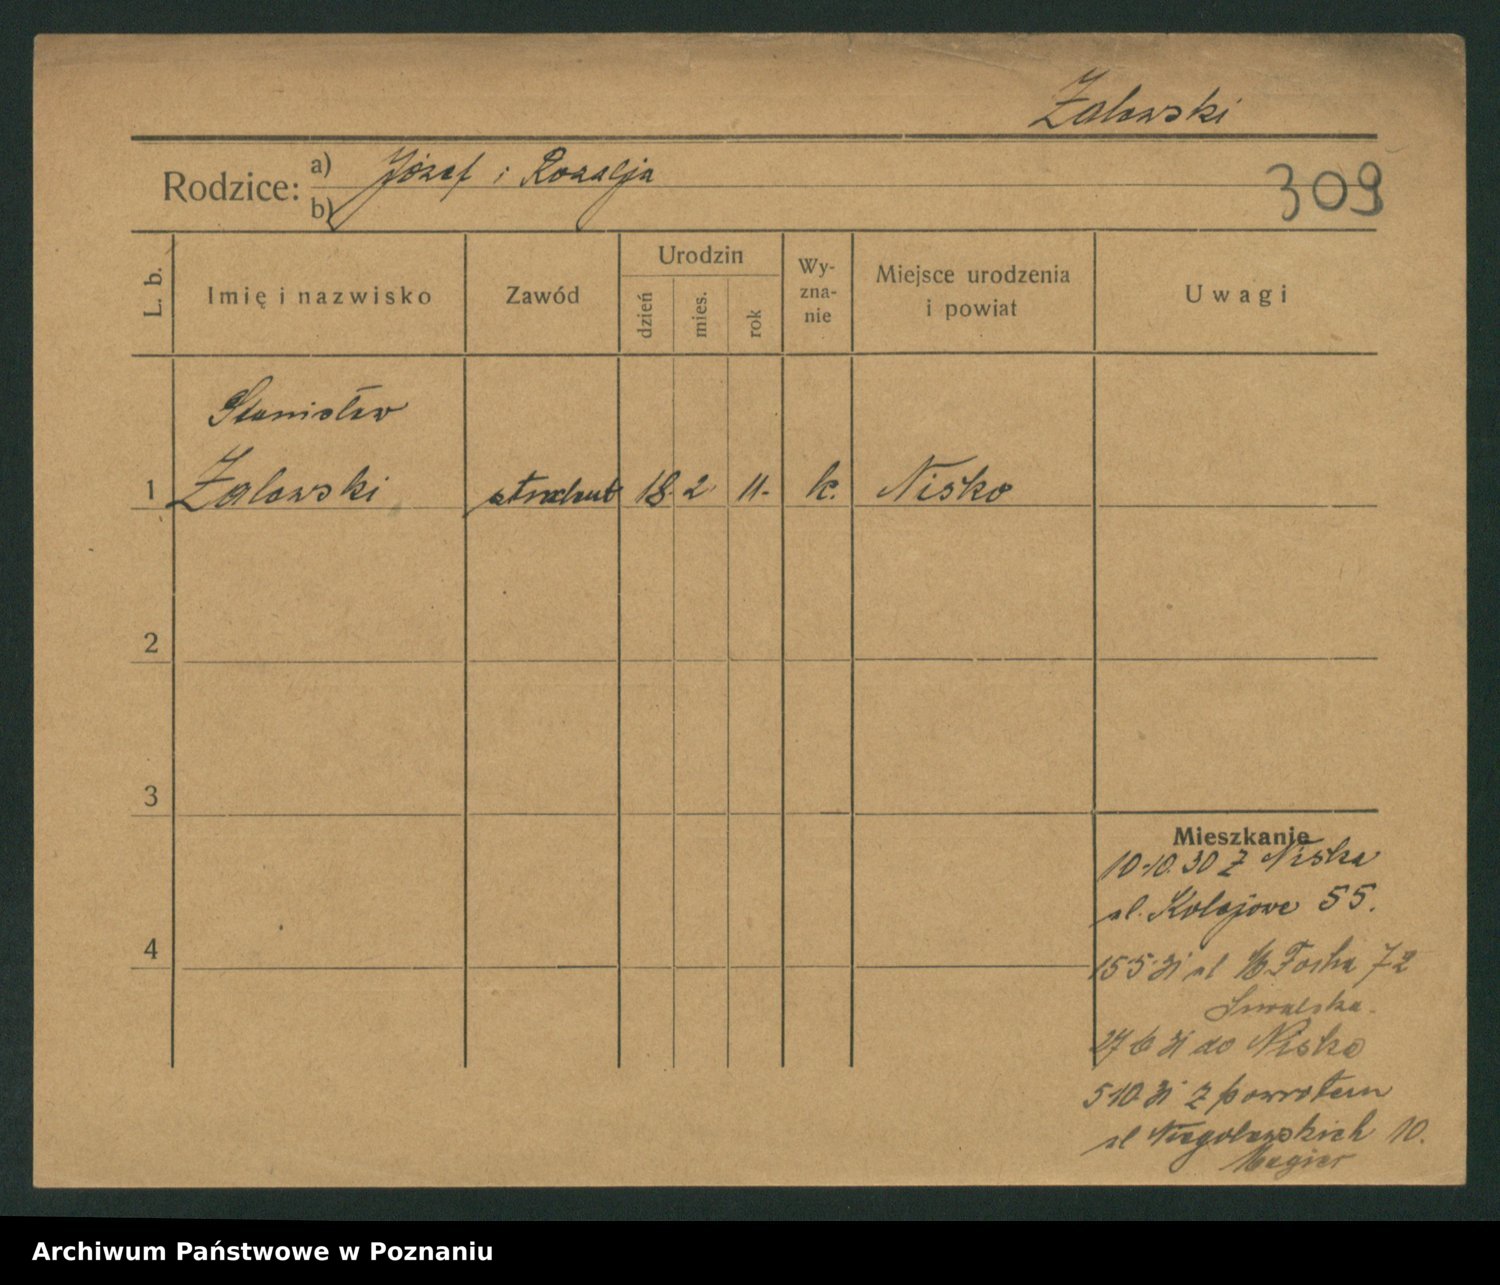 Zalewski
Rodzice: a) Józef i Rozalja
b)
309
L. b. Imię i nazwisko Zawód Urodzin dzień mies. rok Wy-zna-nie Miejsce urodzenia i powiat Uwagi
Stanisław
1 Zalewski 18. 2 11. k. Nisko
2
3
4
Mieszkanie
10.10.30 z Niska
ul. Kolejowe 55.
15 5 31 ul M. Focha 72
27 6 31 do Nisko
5 10 31 z powrotem
ul Niegolewskich 10.
Magier
Archiwum Państwowe w Poznaniu